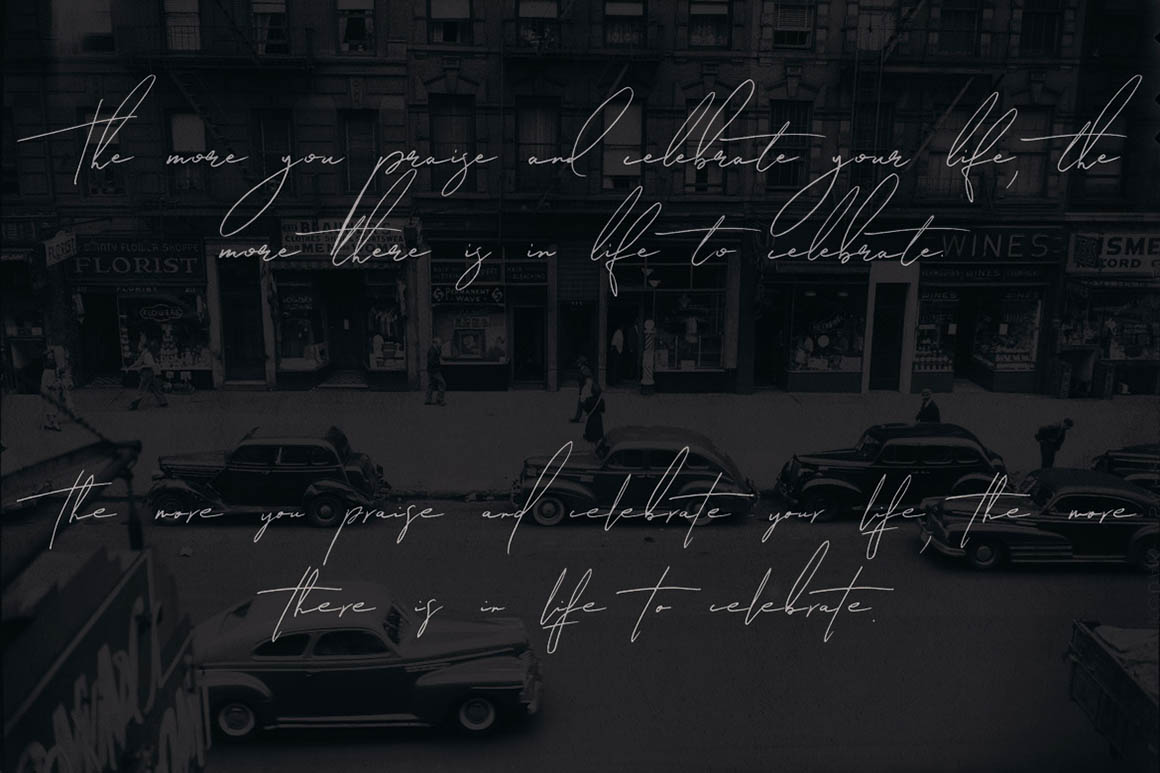 The more you praise and celebrate your life, the
more there is in life to celebrate.
FLORIST
WINES
WINES
PERMANENT
WAVE
FLOWERS
The more you praise and celebrate your life, the more
there is in life to celebrate.